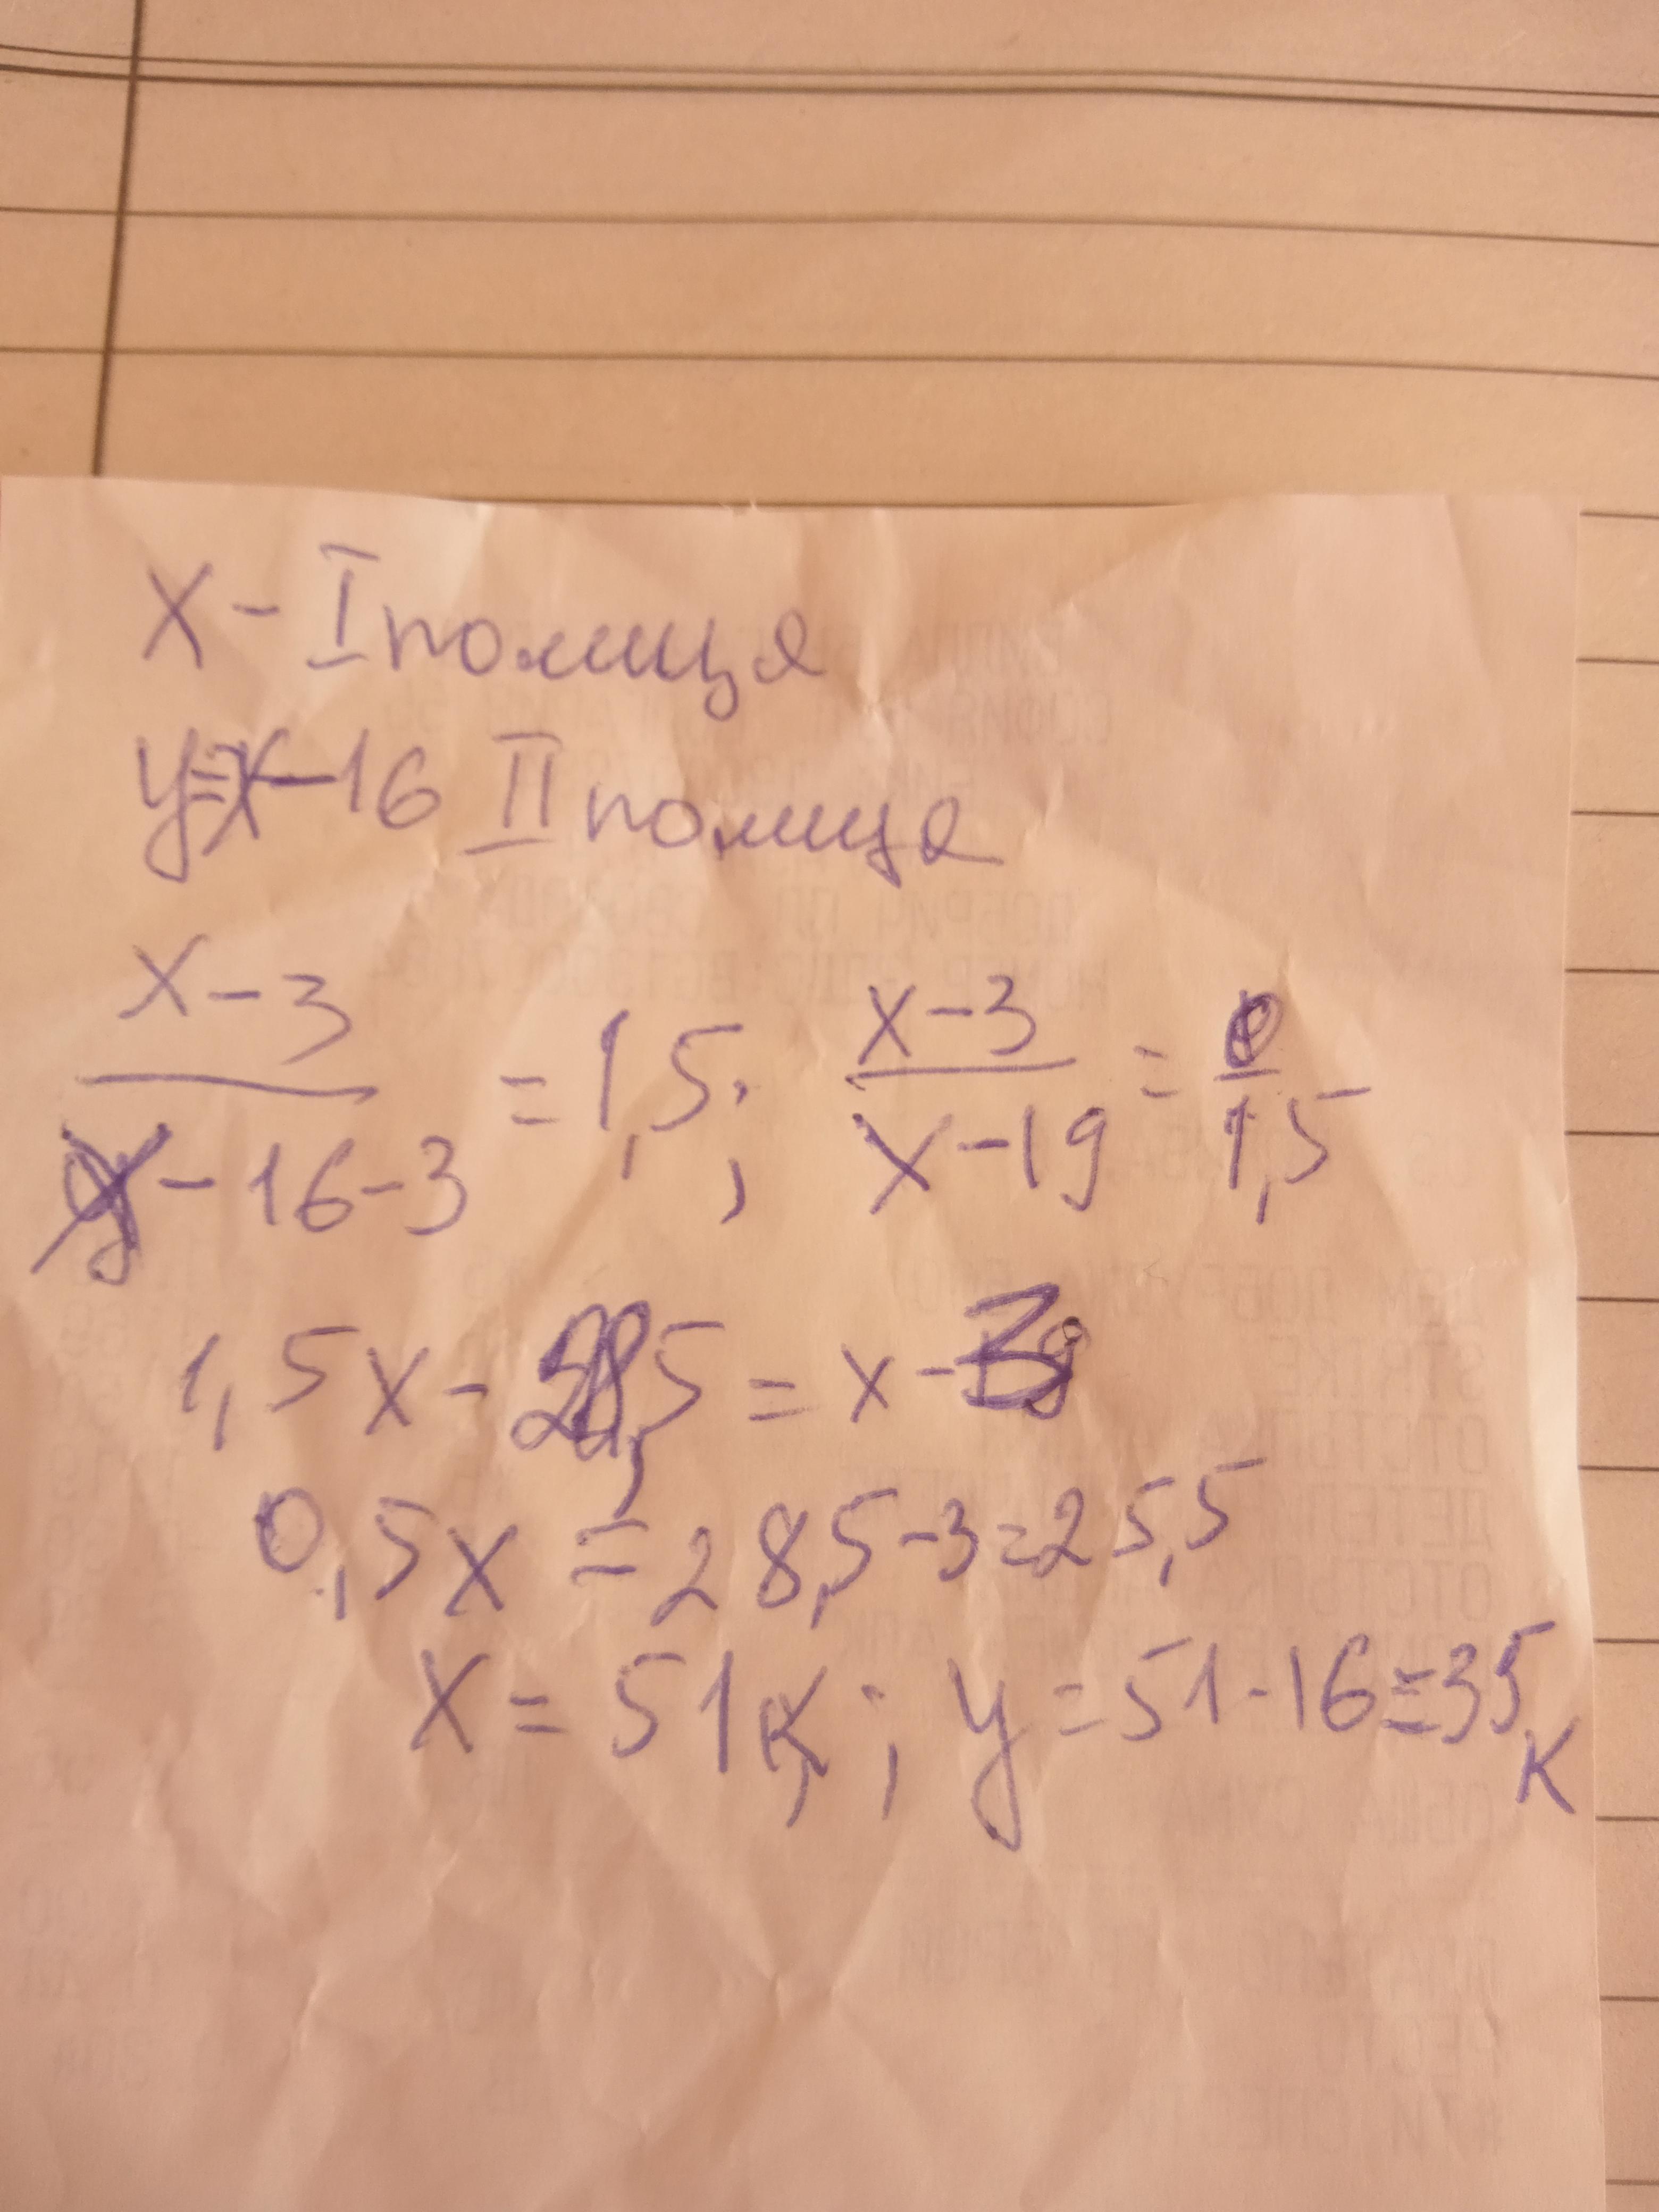 x - I полица
y=x-16 II полица
x-3 / x-16-3 = 1,5; x-3 / x-19 = / 1,5
1,5x - 28,5 = x - 3
0,5x = 28,5-3=25,5
x = 51к; y = 51-16=35к